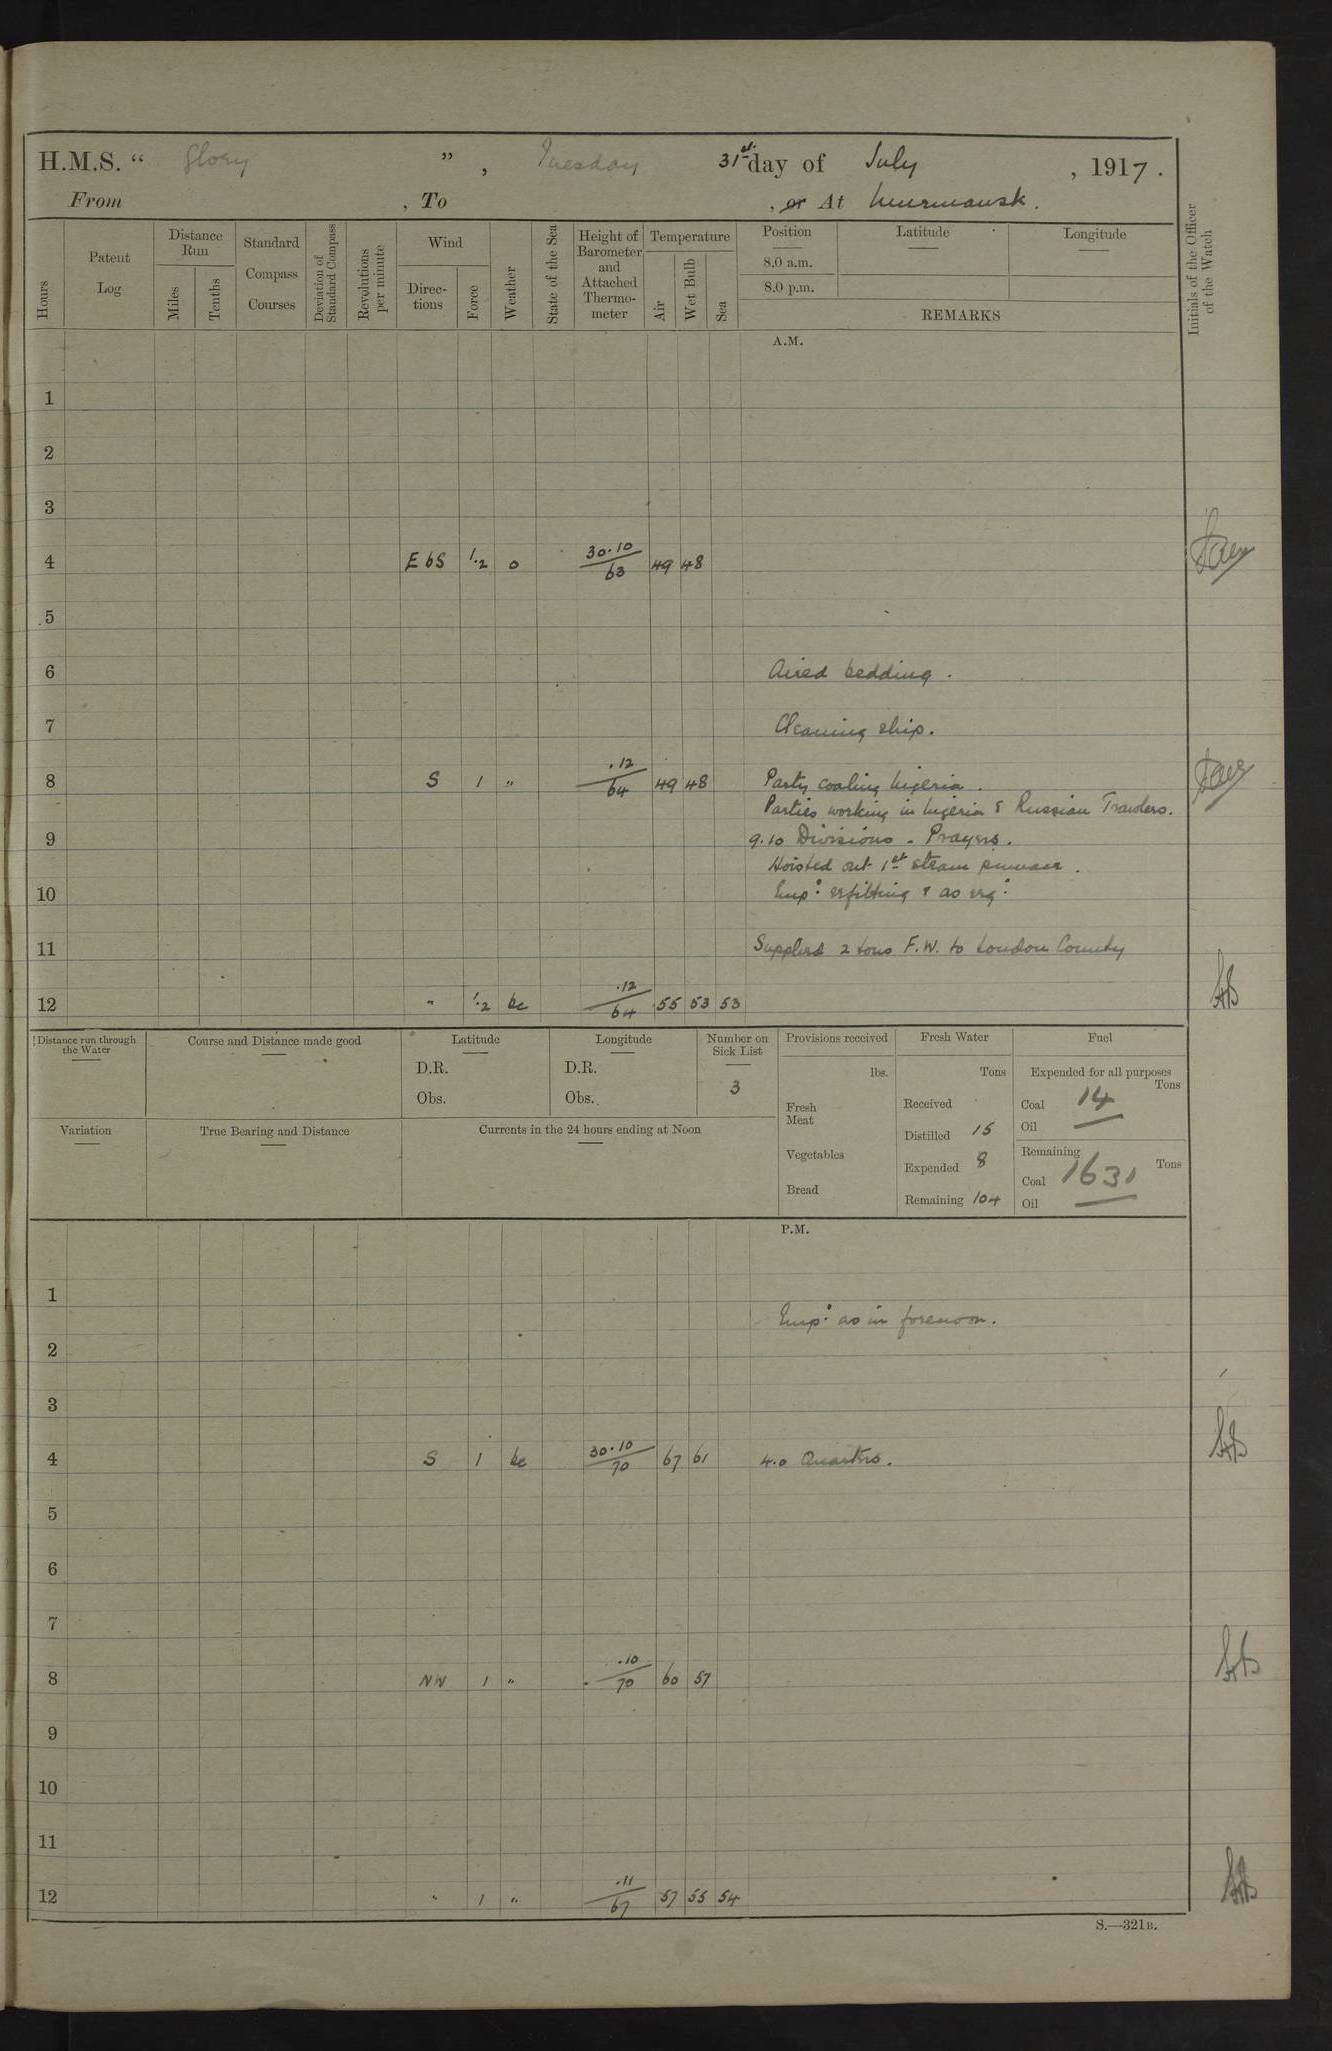 H.M.S. “ Glory ” , Tuesday 31st day of July , 1917 .
From , To , or At Murmansk .
Hours
Patent Log
Distance Run
Miles
Tenths
Standard Compass Courses
Deviation of Standard Compass
Revolutions per minute
Wind
Direc- tions
Force
Weather
State of the Sea
Height of Barometer and Attached Thermo- meter
Temperature
Air
Wet Bulb
Sea
Position
8.0 a.m.
8.0 p.m.
Latitude
Longitude
REMARKS
Initials of the Officer of the Watch
A.M.
1
2
3
4 E b S 1.2 o 30.10/63 49 48
5
6 Aired bedding .
7 Cleaning ship .
8 S 1 " .12/64 49 48 Party coaling Nigeria .
Parties working in Nigeria & Russian Trawlers .
9 9.10 Divisions - Prayers .
Hoisted out 1st steam pinnace .
10 Emp: refitting & as req:
11 Supplied 2 tons F.W. to London County
12 " 1.2 bc .12/64 55 53 53
Distance run through the Water
Course and Distance made good
Latitude
D.R.
Obs.
Longitude
D.R.
Obs.
Number on Sick List
3
Variation
True Bearing and Distance
Currents in the 24 hours ending at Noon
Provisions received
lbs.
Fresh Meat
Vegetables
Bread
Fresh Water
Tons
Received
Distilled 15
Expended 8
Remaining 104
Fuel
Expended for all purposes
Tons
Coal 14
Oil
Remaining
Tons
Coal 1631
Oil
P.M.
1
Emp: as in forenoon .
2
3
4 S 1 bc 30.10/70 67 61 4.0 Quarters .
5
6
7
8 NW 1 " .10/70 60 57
9
10
11
12 " 1 " .11/67 57 55 54
S.—321B.